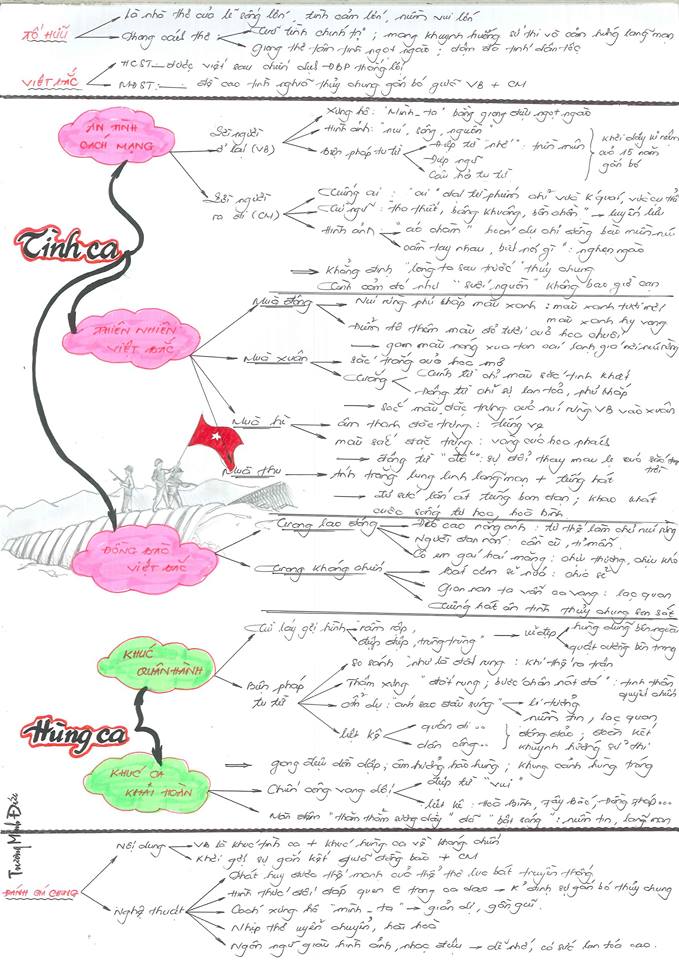 TỐ HỮU
là nhà thơ của lẽ sống lớn, tình cảm lớn, niềm vui lớn
Phong cách thơ
trữ tình chính trị; mang khuynh hướng sử thi và cảm hứng lãng mạn
giọng thơ tâm tình ngọt ngào; đậm đà tính dân tộc
VIỆT BẮC
HCST được viết sau chiến dịch ĐBP thắng lợi
đề cao tình nghĩa thủy chung gắn bó giữa VB + CM
Tình ca
ÂN TÌNH CÁCH MẠNG
Lời người ở lại (VB)
Xưng hô: "Mình - ta" bằng giọng điệu ngọt ngào
Hình ảnh: núi, sông, nguồn
Biện pháp tu từ
Điệp từ "nhớ":
Điệp ngữ
Câu hỏi tu từ
khơi dậy kỉ niệm
15 năm
gắn bó
Lời người ra đi (CM)
"ai" đại từ phiếm chỉ vừa k quát, vừa cụ thể
Từ ngữ: tha thiết, bâng khuâng, bồn chồn → luyến lưu
Hình ảnh
"áo chàm" hoán dụ chỉ đồng bào miền núi
cầm tay nhau, biết nói gì: nghẹn ngào
→ Khẳng định "lòng ta sau trước" thủy chung
Tình cảm đó như "suối nguồn" không bao giờ cạn
THIÊN NHIÊN VIỆT BẮC
Mùa đông
Núi rừng phủ khắp màu xanh: màu xanh tươi mới
màu xanh hy vọng
Điểm tô thêm màu đỏ tươi của hoa chuối
→ gam màu nóng xua tan cái lạnh giá nơi núi rừng
Mùa xuân
sắc trắng của hoa mơ
Trắng
Tính từ chỉ màu sắc tinh khiết
Động từ chỉ sự lan tỏa, phủ khắp
→ sắc màu đặc trưng của núi rừng VB vào xuân
Mùa hè
âm thanh đặc trưng: tiếng ve
màu sắc đặc trưng: vàng của hoa phách
→ động từ "đổ": sự đổi thay màu lẹ của sắc trời
Mùa thu
Ánh trăng lung linh lãng mạn + tiếng hát
→ Từ sức lấn át tiếng bom đạn; khao khát
cuộc sống tự học, hòa bình
ĐỒNG BÀO VIỆT BẮC
Trong lao động
Đèo cao nắng ánh: tư thế làm chủ núi rừng
Người đan nón: cần cù, tỉ mẩn
Cô em gái hái măng: chịu thương, chịu khó
Trong kháng chiến
Bát cơm sẻ nửa: chia sẻ
Gian nan ta vẫn ca vang: lạc quan
Tiếng hát ân tình thủy chung son sắt
Hùng ca
KHÚC QUÂN HÀNH
Từ láy gợi hình
rầm rập,
điệp điệp, trùng trùng
vẻ đẹp
hùng dũng bên ngoài
quật cường bên trong
Biện pháp tu từ
So sánh "như là đất rung": khí thế ra trận
Thậm xưng "đất rung; bước chân nát đá": tinh thần
quyết chiến
Ẩn dụ: ánh sao đầu súng
lí tưởng
niềm tin, lạc quan
Liệt kê
quân đi...
dân công...
đông đảo; đoàn kết
khuynh hướng sử thi
KHÚC CA KHẢI HOÀN
giọng điệu dồn dập, âm hưởng hào hùng; khung cảnh hùng tráng
Chiến công vang dội
điệp từ "vui"
liệt kê: Hòa Bình, Tây Bắc, Đồng Tháp...
"thăm thẳm sương dày" đã "bật sáng": niềm tin, lãng mạn
Trương Minh Đức
ĐÁNH GIÁ CHUNG
Nội dung
VB là khúc tình ca + khúc hùng ca về kháng chiến
Khơi gợi sự gắn kết giữa đồng bào + CM
Nghệ thuật
Phát huy được thế mạnh của thể thơ lục bát truyền thống
Hình thức đối đáp quen t trong ca dao → k định sự gắn bó thủy chung
Cách xưng hô "mình - ta" → giản dị, gần gũi.
Nhịp thơ uyển chuyển, hài hòa
Ngôn ngữ giàu hình ảnh, nhạc điệu → dễ nhớ, có sức lan tỏa cao.